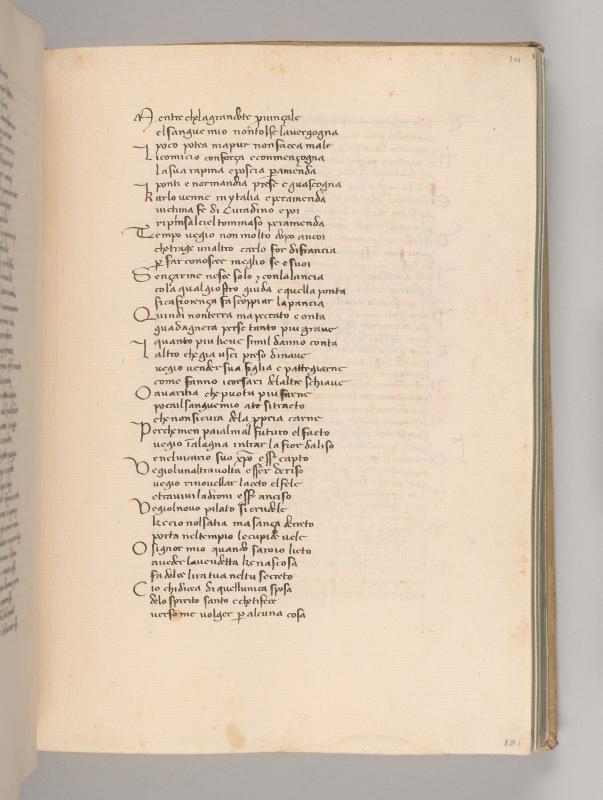 101
Mentre chela grandote p̲uinçale
el sangue mio nontolse lauergogna
poco potea mapur non facea male
Li comicio conforça econmençogna
la sua rapina eposcia p̲ amenda
ponti e normandia prese e guascogna
Karlo uenne inytalia e p̲eramenda
uictima fe di Curadino epoi
ripinsalciel tommaso p̲eramenda
Tempo uegio non molto dopo ancoi
chetragge unaltro carlo for difrancia
p̲ far conoscer meglio se esuoi
Sençarme nesce solo ⁊ conlalancia
cola qual giostro giuda equella ponta
si cafiorença fa scoppiar lapancia
Quindi nonterra ma peccato e onta
guadagnera perse tanto piu graue
quanto piu lieue simil danno conta
Laltro chegia usci preso dinaue
uegio uender sua figlia e pattegiarne
come fanno icorsari delaltre schiaue
O auaritia che puotu piu farne
poscail sangue mio ate sitracto
che nonsi cura dela pp̲ria carne
Perchemen paialmal futuro elfacto
uegio īalagna intrar la fior daliso
enelvicario suo xp̄o esser capto
Vegiolunaltrauolta esser deriso
uegio rinouellar laceto elfele
etrauiui ladroni esser anciso
Vegiolnouo pilato si crudele
ke cio nolsatia masança decreto
porta neltempio lecupide uele
O signor mio quando saroio lieto
aueder lauendetta ke nascosa
fa dolce lira tua neltu secreto
Cio chidicea di quellunica sposa
delo spirito santo echetifece
uerso me uolger p̲ alcuna cosa
101